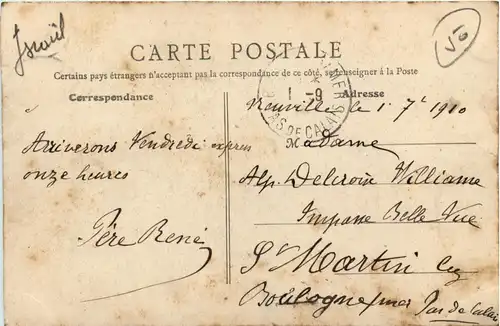 Israël
V6
CARTE POSTALE
Certains pays étrangers n'acceptant pas la correspondance de ce côté, se renseigner à la Poste
Correspondance
Adresse
1 -9
PAS DE CALAIS
Neuville le 1 7e 1910
Arriverons Vendredi express
onze heures
Père René
Madame
Alp. Delcroix Williame
Impasse Belle Vue
St Martin
Boulogne s/mer Pas de Calais